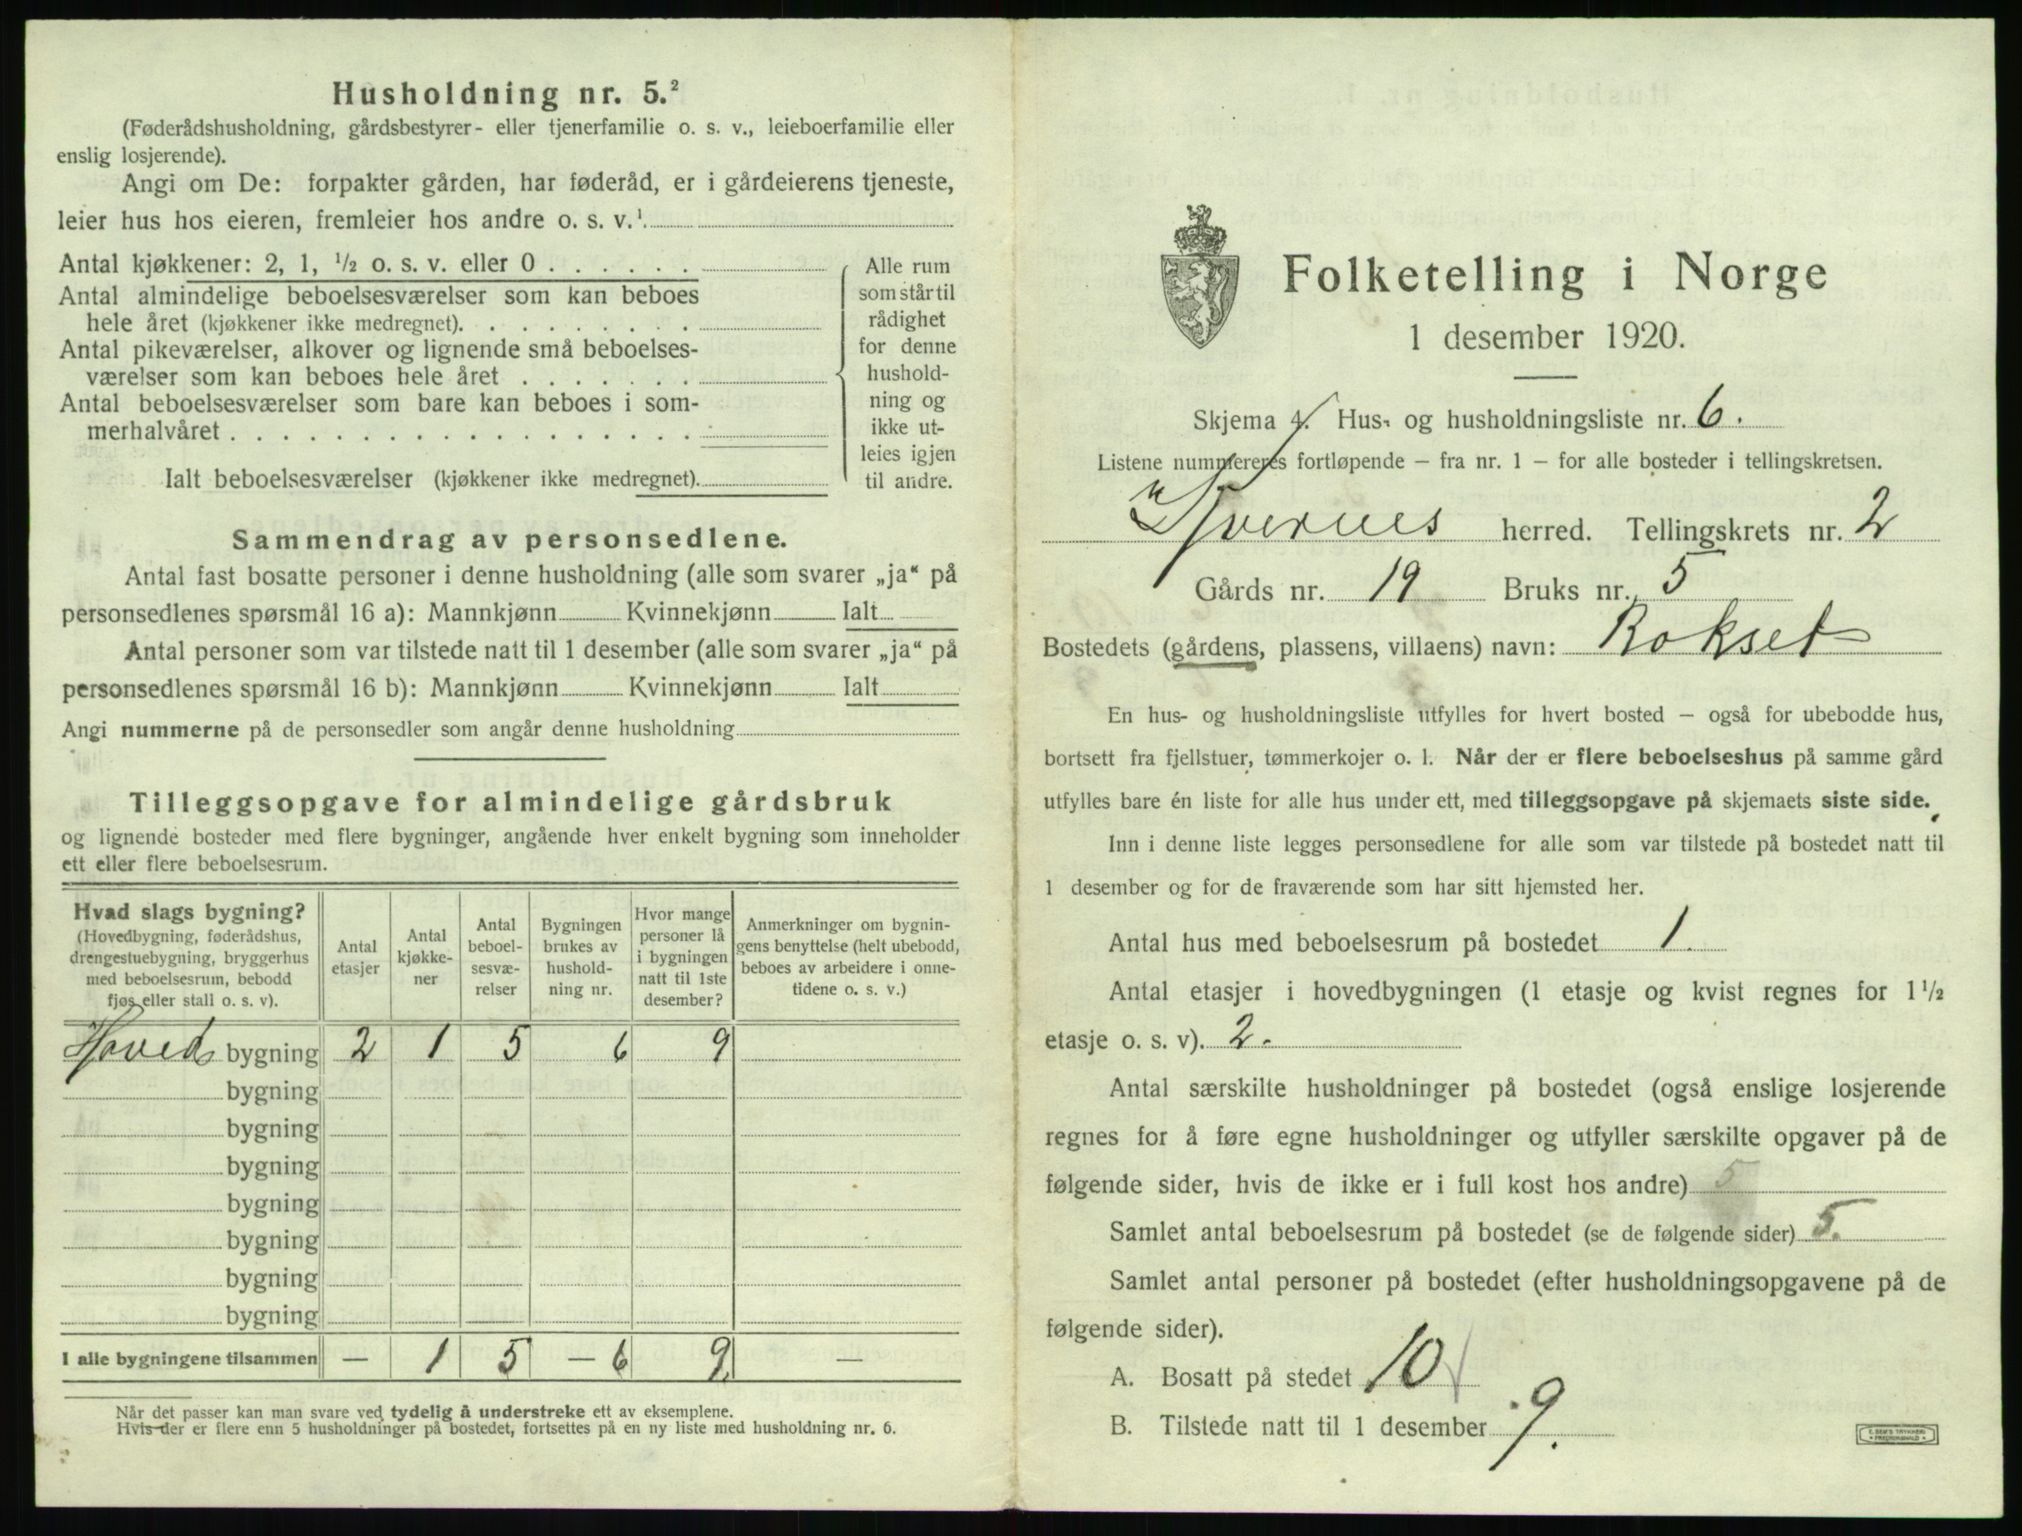 Husholdning nr. 5.²
(Føderådshusholdning, gårdsbestyrer- eller tjenerfamilie o. s. v., leieboerfamilie eller
enslig losjerende).
Angi om De: forpakter gården, har føderåd, er i gårdeierens tjeneste,
leier hus hos eieren, fremleier hos andre o. s. v.¹
Antal kjøkkener: 2, 1, ½ o. s. v. eller 0 . . . . . .
Antal almindelige beboelsesværelser som kan beboes
hele året (kjøkkener ikke medregnet). . . . . . . . .
Antal pikeværelser, alkover og lignende små beboelses-
værelser som kan beboes hele året . . . . . . .
Antal beboelsesværelser som bare kan beboes i som-
merhalvåret . . . . . . . . . . . . . . . . . .
Ialt beboelsesværelser (kjøkkener ikke medregnet).
Alle rum
som står til
rådighet
for denne
hushold-
ning og
ikke ut-
leies igjen
til andre.
Sammendrag av personsedlene.
Antal fast bosatte personer i denne husholdning (alle som svarer „ja“ på
personsedlenes spørsmål 16 a): Mannkjønn Kvinnekjønn Ialt
Antal personer som var tilstede natt til 1 desember (alle som svarer „ja“ på
personsedlenes spørsmål 16 b): Mannkjønn Kvinnekjønn Ialt
Angi nummerne på de personsedler som angår denne husholdning
Tilleggsopgave for almindelige gårdsbruk
og lignende bosteder med flere bygninger, angående hver enkelt bygning som inneholder
ett eller flere beboelsesrum.
Hvad slags bygning?
(Hovedbygning, føderådshus,
drengestuebygning, bryggerhus
med beboelsesrum, bebodd
fjøs eller stall o. s. v).
Antal
etasjer
Antal
kjøkke-
ner
Antal
beboel-
sesvæ-
relser
Bygningen
brukes av
hushold-
ning nr.
Hvor mange
personer lå
i bygningen
natt til 1ste
desember?
Anmerkninger om bygnin-
gens benyttelse (helt ubebodd,
beboes av arbeidere i onne-
tidene o. s. v.)
Hoved bygning 2 1 5 6 9
bygning
bygning
bygning
bygning
bygning
bygning
bygning
I alle bygningene tilsammen — 1 5 — 6 9 —
Når det passer kan man svare ved tydelig å understreke ett av eksemplene.
Hvis der er flere enn 5 husholdninger på bostedet, fortsettes på en ny liste med husholdning nr. 6.
Folketelling i Norge
1 desember 1920.
Skjema 4. Hus- og husholdningsliste nr. 6.
Listene nummereres fortløpende — fra nr. 1 — for alle bosteder i tellingskretsen.
Kvernes herred. Tellingskrets nr. 2
Gårds nr. 19 Bruks nr. 5
Bostedets (gårdens, plassens, villaens) navn: Rokset
En hus- og husholdningsliste utfylles for hvert bosted — også for ubebodde hus,
bortsett fra fjellstuer, tømmerkojer o. l. Når der er flere beboelseshus på samme gård
utfylles bare én liste for alle hus under ett, med tilleggsopgave på skjemaets siste side.
Inn i denne liste legges personsedlene for alle som var tilstede på bostedet natt til
1 desember og for de fraværende som har sitt hjemsted her.
Antal hus med beboelsesrum på bostedet 1.
Antal etasjer i hovedbygningen (1 etasje og kvist regnes for 1½
etasje o. s. v). 2.
Antal særskilte husholdninger på bostedet (også enslige losjerende
regnes for å føre egne husholdninger og utfyller særskilte opgaver på de
følgende sider, hvis de ikke er i full kost hos andre) 5
Samlet antal beboelsesrum på bostedet (se de følgende sider) 5.
Samlet antal personer på bostedet (efter husholdningsopgavene på de
følgende sider).
A. Bosatt på stedet 10
B. Tilstede natt til 1 desember 9.